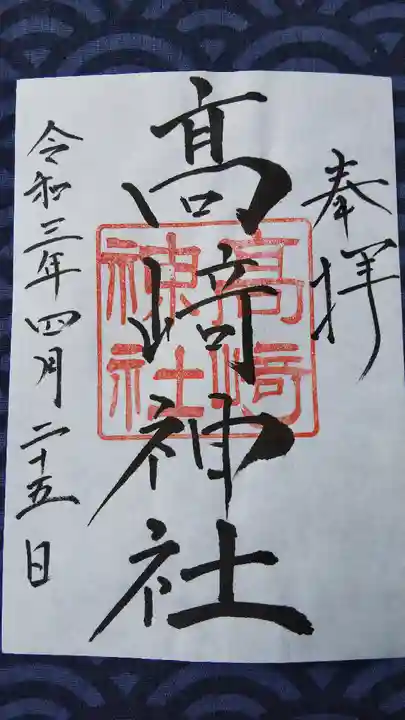 奉拝
髙﨑神社
高崎神社
令和三年四月二十五日